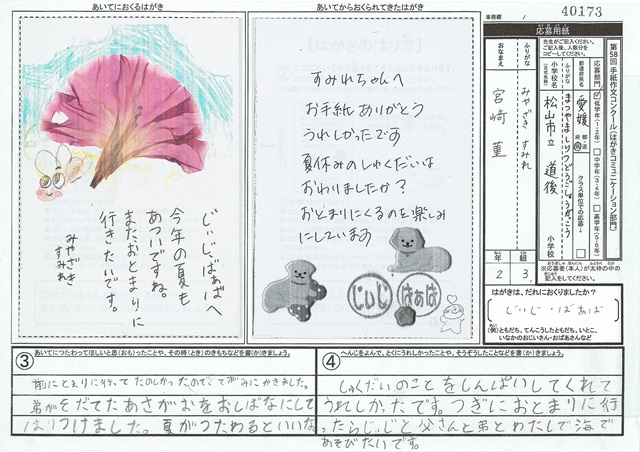 事務欄 40173
応募用紙
第58回 手紙作文コンクール〔はがきコミュニケーション部門〕
応募部門
低学年(1・2年)
中学年(3・4年)
高学年(5・6年)
先生がご記入ください。
ご記入後、人数分を
コピーしてください。
都道府県名
愛媛
都道府県
クラス単位での応募
ふりがな
まつやましりつどうごしょうがっこう
小学校名
(正式名称)
松山市立 道後
小学校
※応募者(本人)が太枠の中の
記入をしてください。
ふりがな
みやざき すみれ
おなまえ
宮崎 菫
2年
3組
はがきは、だれにおくりましたか?
じぃじ・ばぁば
(例)ともだち、てんこうしたともだち、いとこ、
いなかのおじいさん・おばあさんなど
あいてにおくるはがき
じぃじ、ばぁばへ
今年の夏も
あついですね。
またおとまりに
行きたいです。
みやざき
すみれ
あいてからおくられてきたはがき
すみれちゃんへ
お手紙ありがとう
うれしかったです
夏休みのしゅくだいは
おわりましたか?
おとまりにくるのを楽しみ
にしています
じぃじ
ばぁば
③ あいてにつたわってほしいと思(おも)ったことや、その時(とき)のきもちなどを書(か)きましょう。
前にとまりに行ってたのしかったのでてがみにかきました。
弟がそだてたあさがおをおしばなにして
はりつけました。夏がつたわるといいな。
④ へんじをよんで、とくにうれしかったことや、そうぞうしたことなどを書(か)きましょう。
しゅくだいのことをしんぱいしてくれて
うれしかったです。つぎにおとまりに行
ったらじぃじと父さんと弟とわたしで海で
あそびたいです。